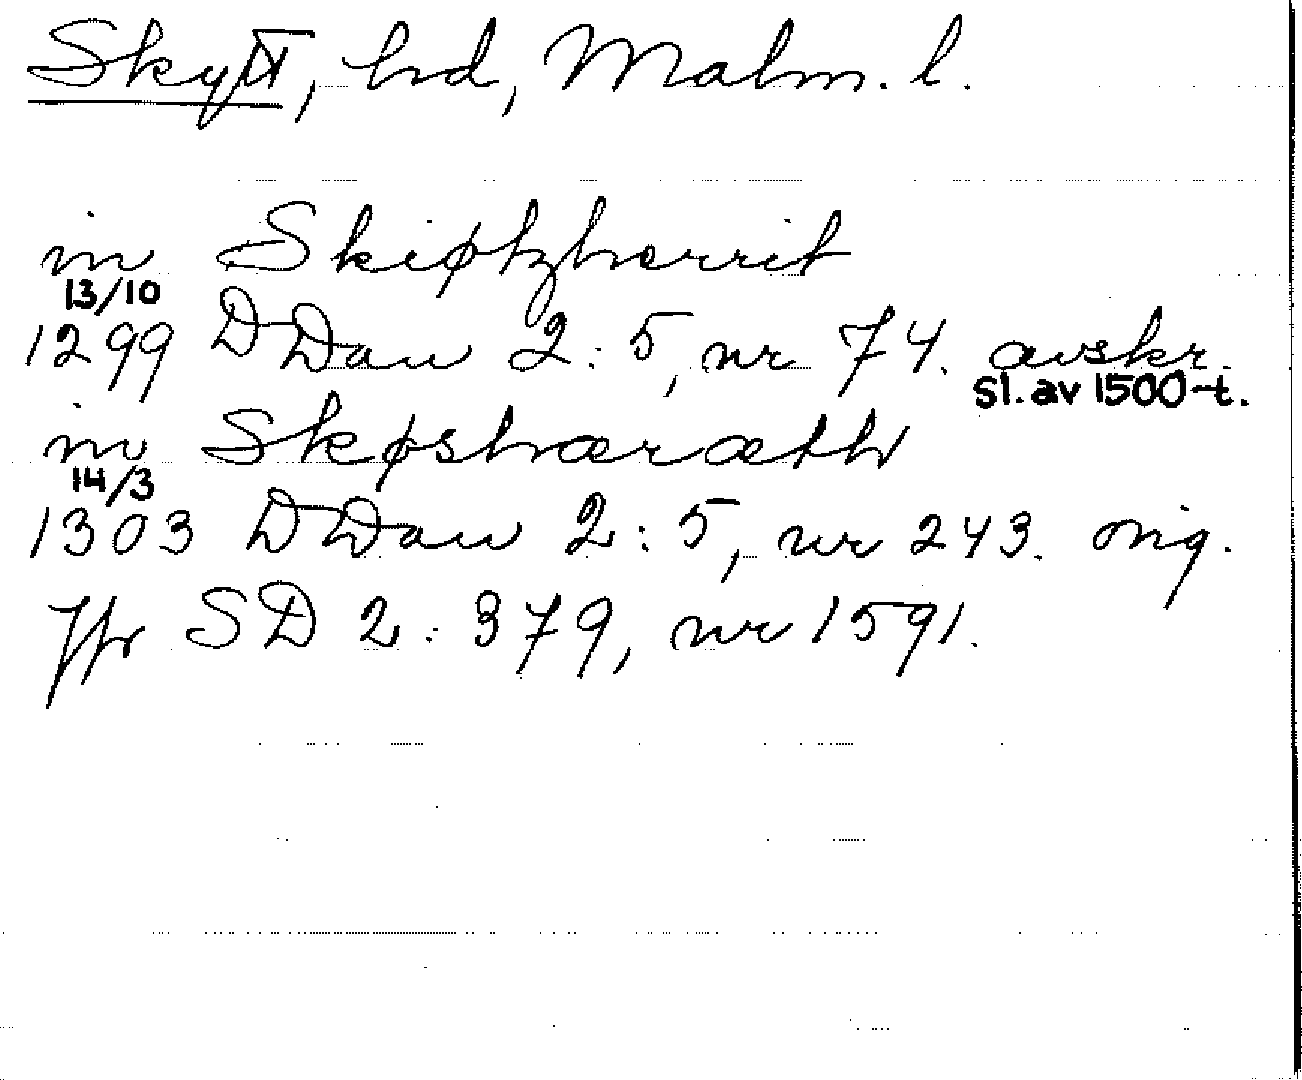 Skytt, hd, Malm. l.
in Skiøtzherrit
13/10
1299 DDan 2:5, nr 74. avskr.
sl. av 1500-t.
in Skøshæræth
14/3
1303 DDan 2:5, nr 243. orig.
Jfr SD 2:379, nr 1591.